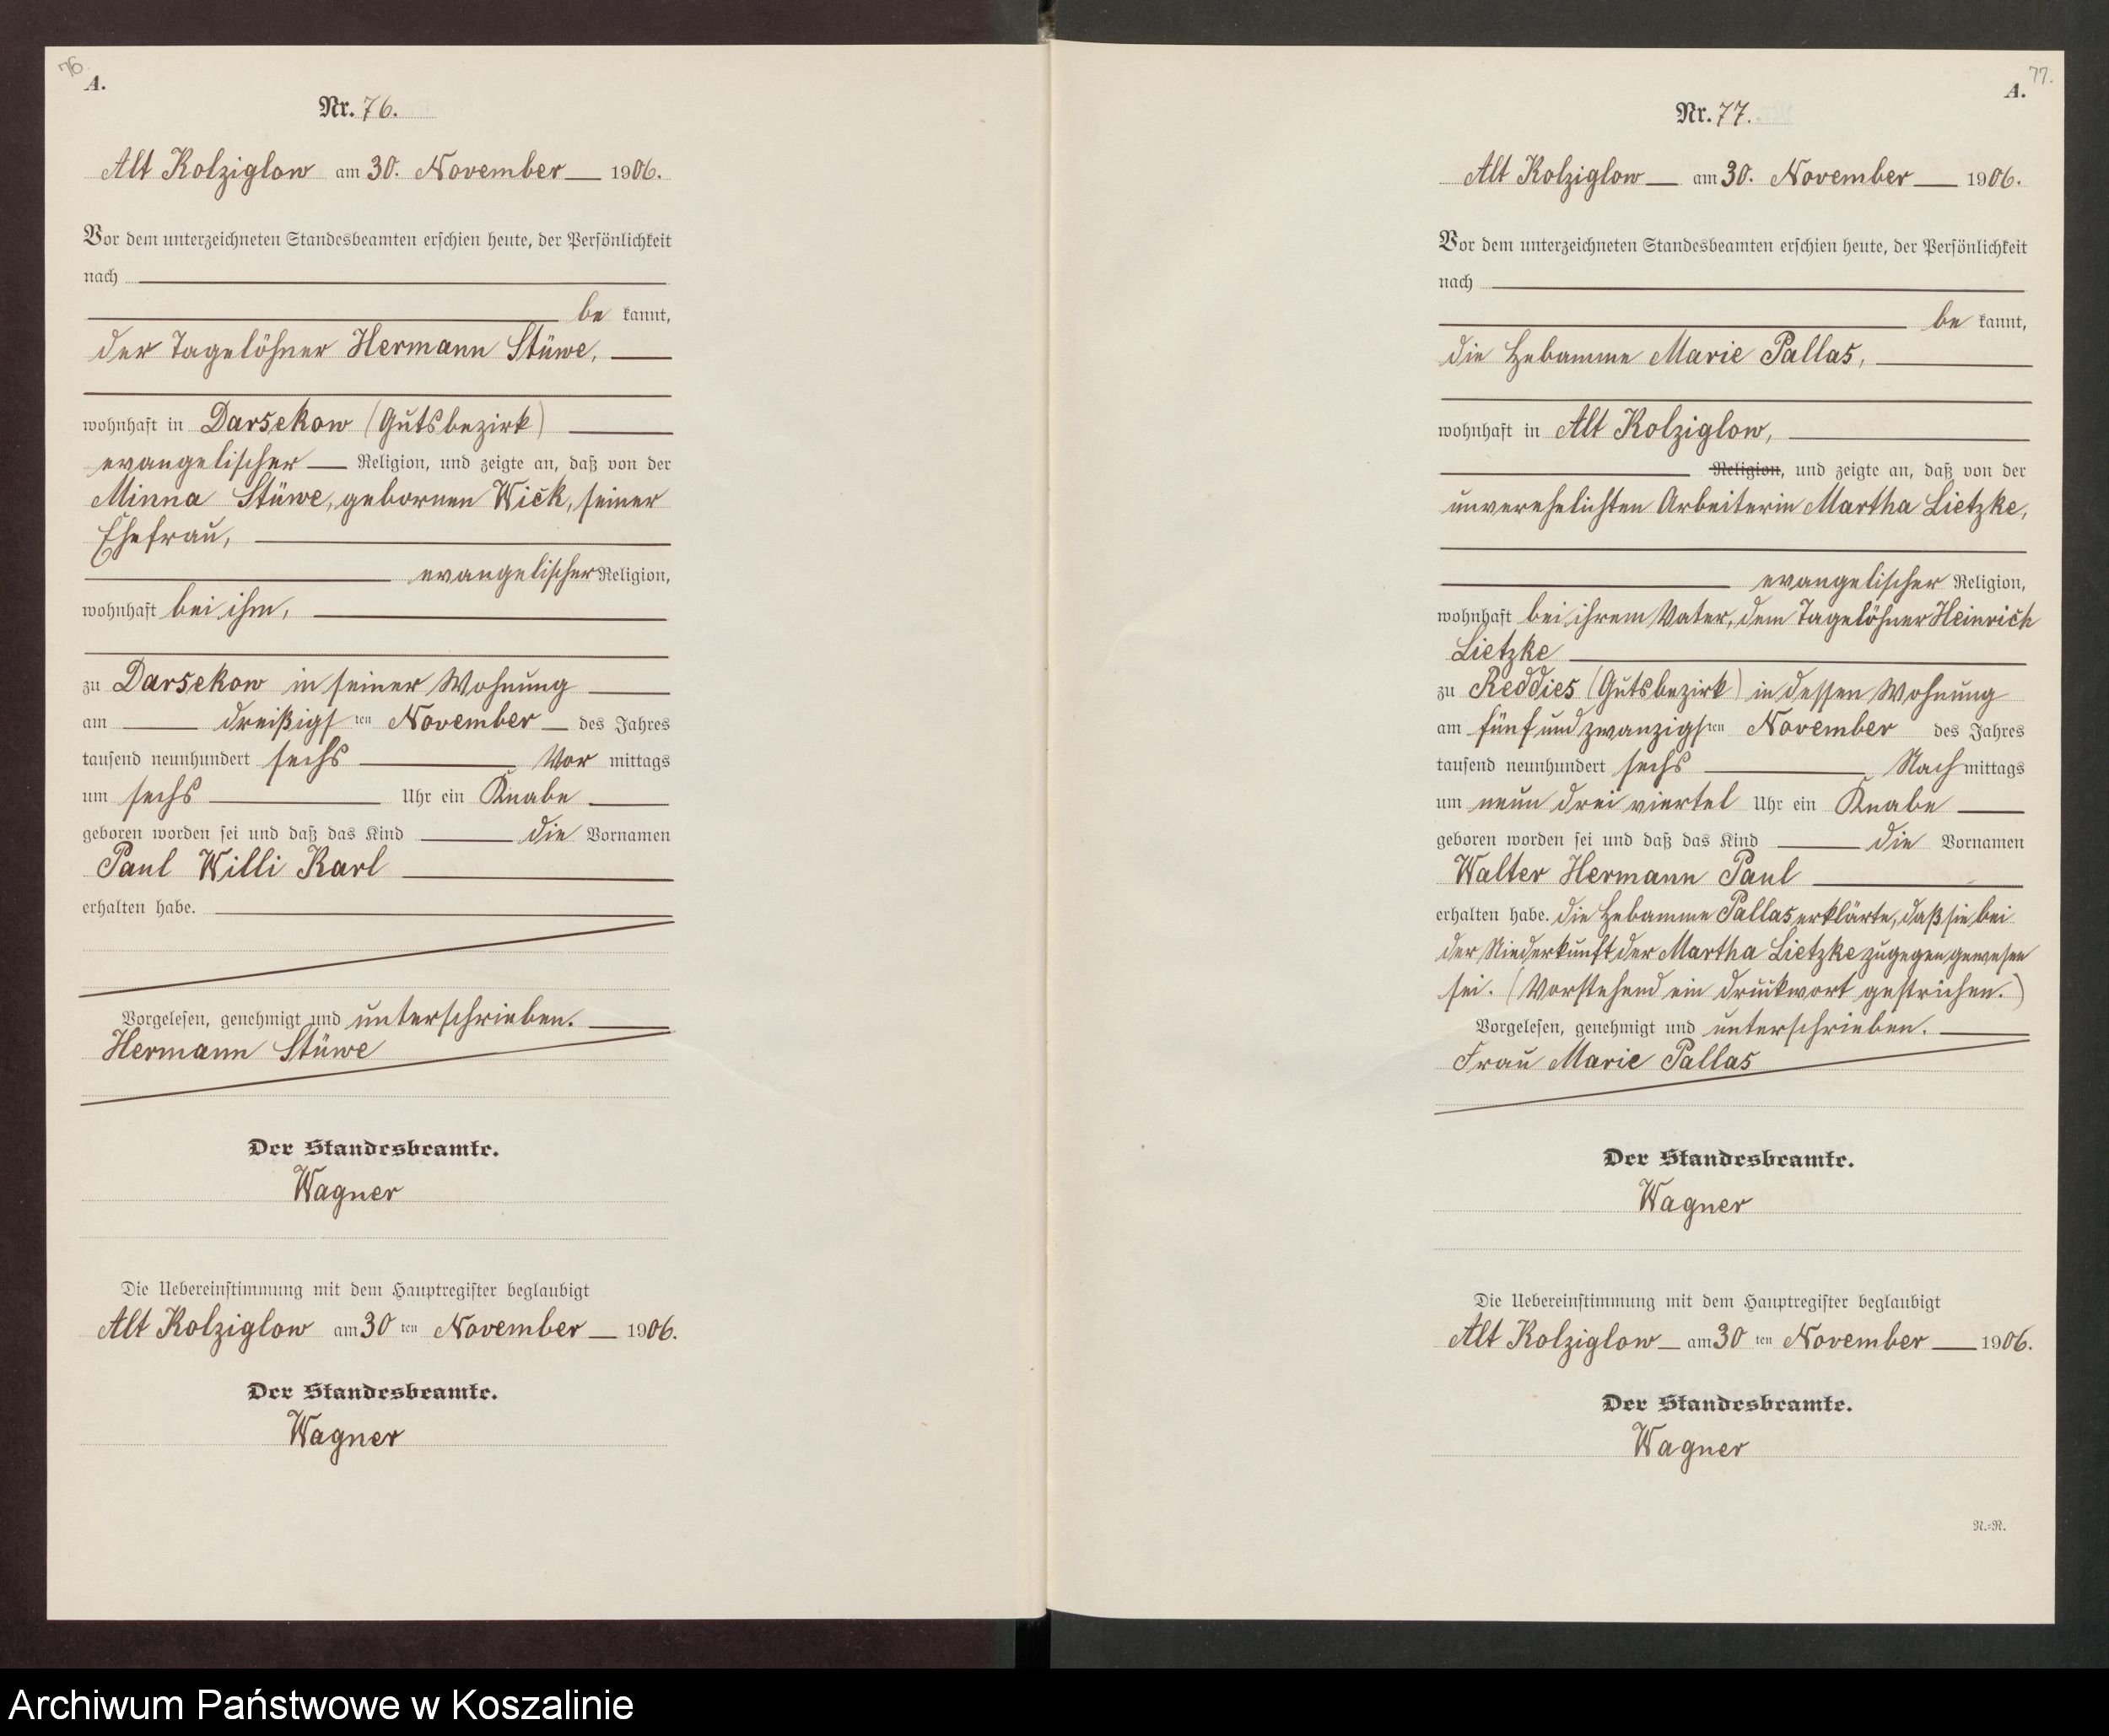 76.
A.
Nr. 76.
Alt Kolziglow am 30. November 1906.
Vor dem unterzeichneten Standesbeamten erschien heute, der Persönlichkeit
nach
be kannt,
der Tagelöhner Hermann Stüwe,
wohnhaft in Darsekow (Gutsbezirk)
evangelischer Religion, und zeigte an, daß von der
Minna Stüwe, gebornen Wick, seiner
Ehefrau,
evangelischer Religion,
wohnhaft bei ihm,
zu Darsekow in seiner Wohnung
am dreißigsten November des Jahres
tausend neunhundert sechs Vor mittags
um sechs Uhr ein Knabe
geboren worden sei und daß das Kind die Vornamen
Paul Willi Karl
erhalten habe.
Vorgelesen, genehmigt und unterschrieben.
Hermann Stüwe
Der Standesbeamte.
Wagner
Die Uebereinstimmung mit dem Hauptregister beglaubigt
Alt Kolziglow am 30 ten November 1906.
Der Standesbeamte.
Wagner
77.
A.
Nr. 77.
Alt Kolziglow am 30. November 1906.
Vor dem unterzeichneten Standesbeamten erschien heute, der Persönlichkeit
nach
be kannt,
die Hebamme Marie Pallas,
wohnhaft in Alt Kolziglow,
Religion, und zeigte an, daß von der
unverehelichten Arbeiterin Martha Lietzke,
evangelischer Religion,
wohnhaft bei ihrem Vater, dem Tagelöhner Heinrich
Lietzke
zu Reddies (Gutsbezirk) in dessen Wohnung
am fünf und zwanzigsten November des Jahres
tausend neunhundert sechs Nach mittags
um neun drei viertel Uhr ein Knabe
geboren worden sei und daß das Kind die Vornamen
Walter Hermann Paul
erhalten habe. Die Hebamme Pallas erklärte, daß sie bei
der Niederkunft der Martha Lietzke zugegen gewesen
sei. (Vorstehend ein Druckwort gestrichen.)
Vorgelesen, genehmigt und unterschrieben.
Frau Marie Pallas
Der Standesbeamte.
Wagner
Die Uebereinstimmung mit dem Hauptregister beglaubigt
Alt Kolziglow am 30 ten November 1906.
Der Standesbeamte.
Wagner
N.=R.
Archiwum Państwowe w Koszalinie